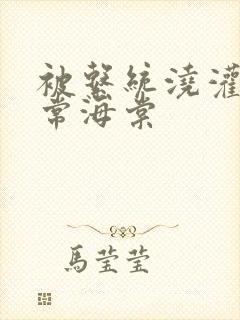 被繫統澆灌
常海棠
馬瑩瑩